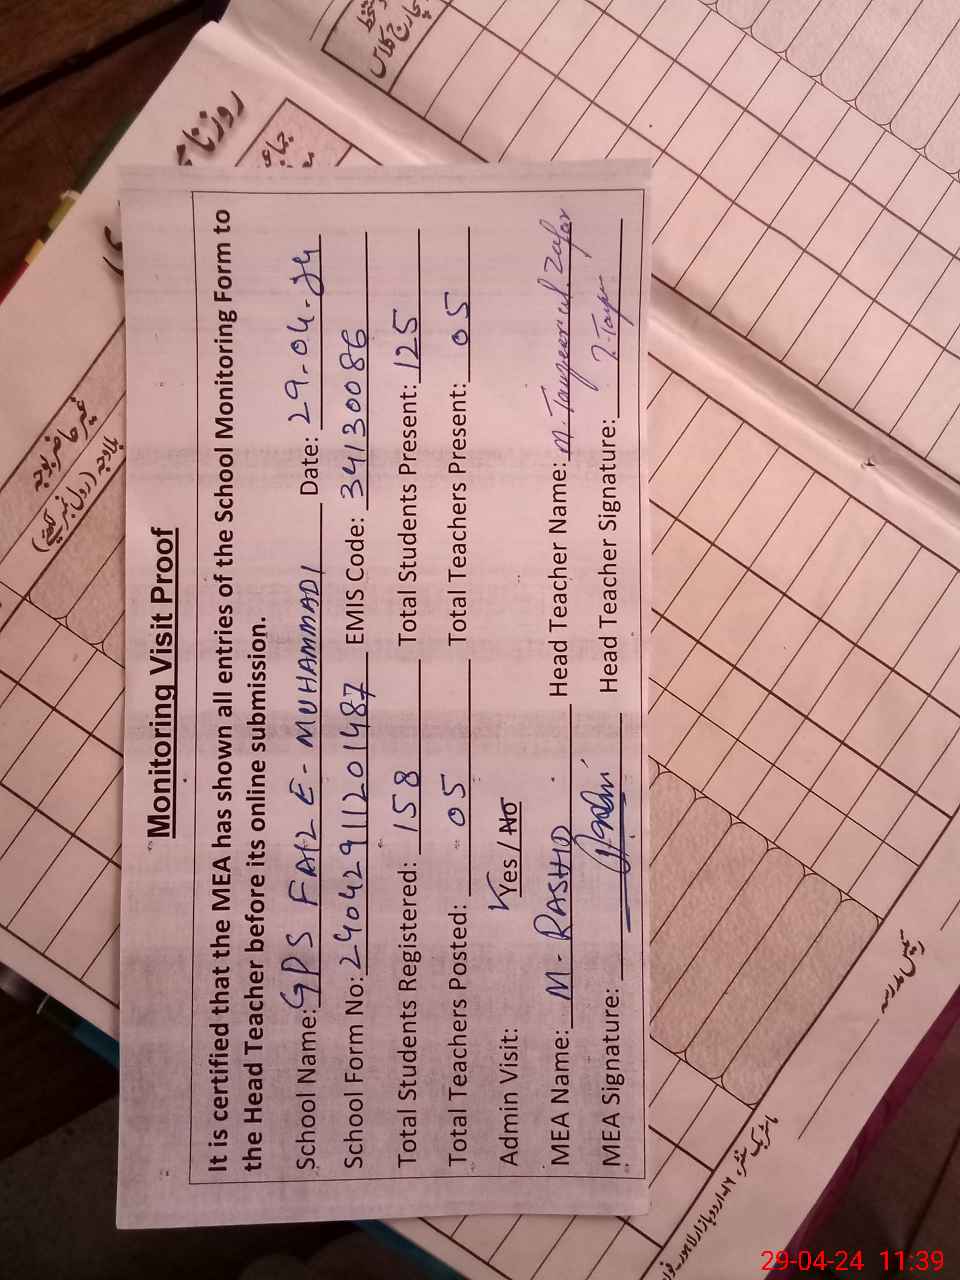 Monitoring Visit Proof
It is certified that the MEA has shown all entries of the School Monitoring Form to
the Head Teacher before its online submission.
School Name: GPS FAIZ E-MUHAMMADI Date: 29-04-24
School Form No: 24042911201487 EMIS Code: 34130086
Total Students Registered: 158 Total Students Present: 125
Total Teachers Posted: 05 Total Teachers Present: 05
Admin Visit: Yes / No
MEA Name: M-RASHID Head Teacher Name: M. Tanzeer ul. Zafar
MEA Signature: Head Teacher Signature:
غیر حاضر بلاوجہ
رئیس مدرسہ
29-04-24 11:39